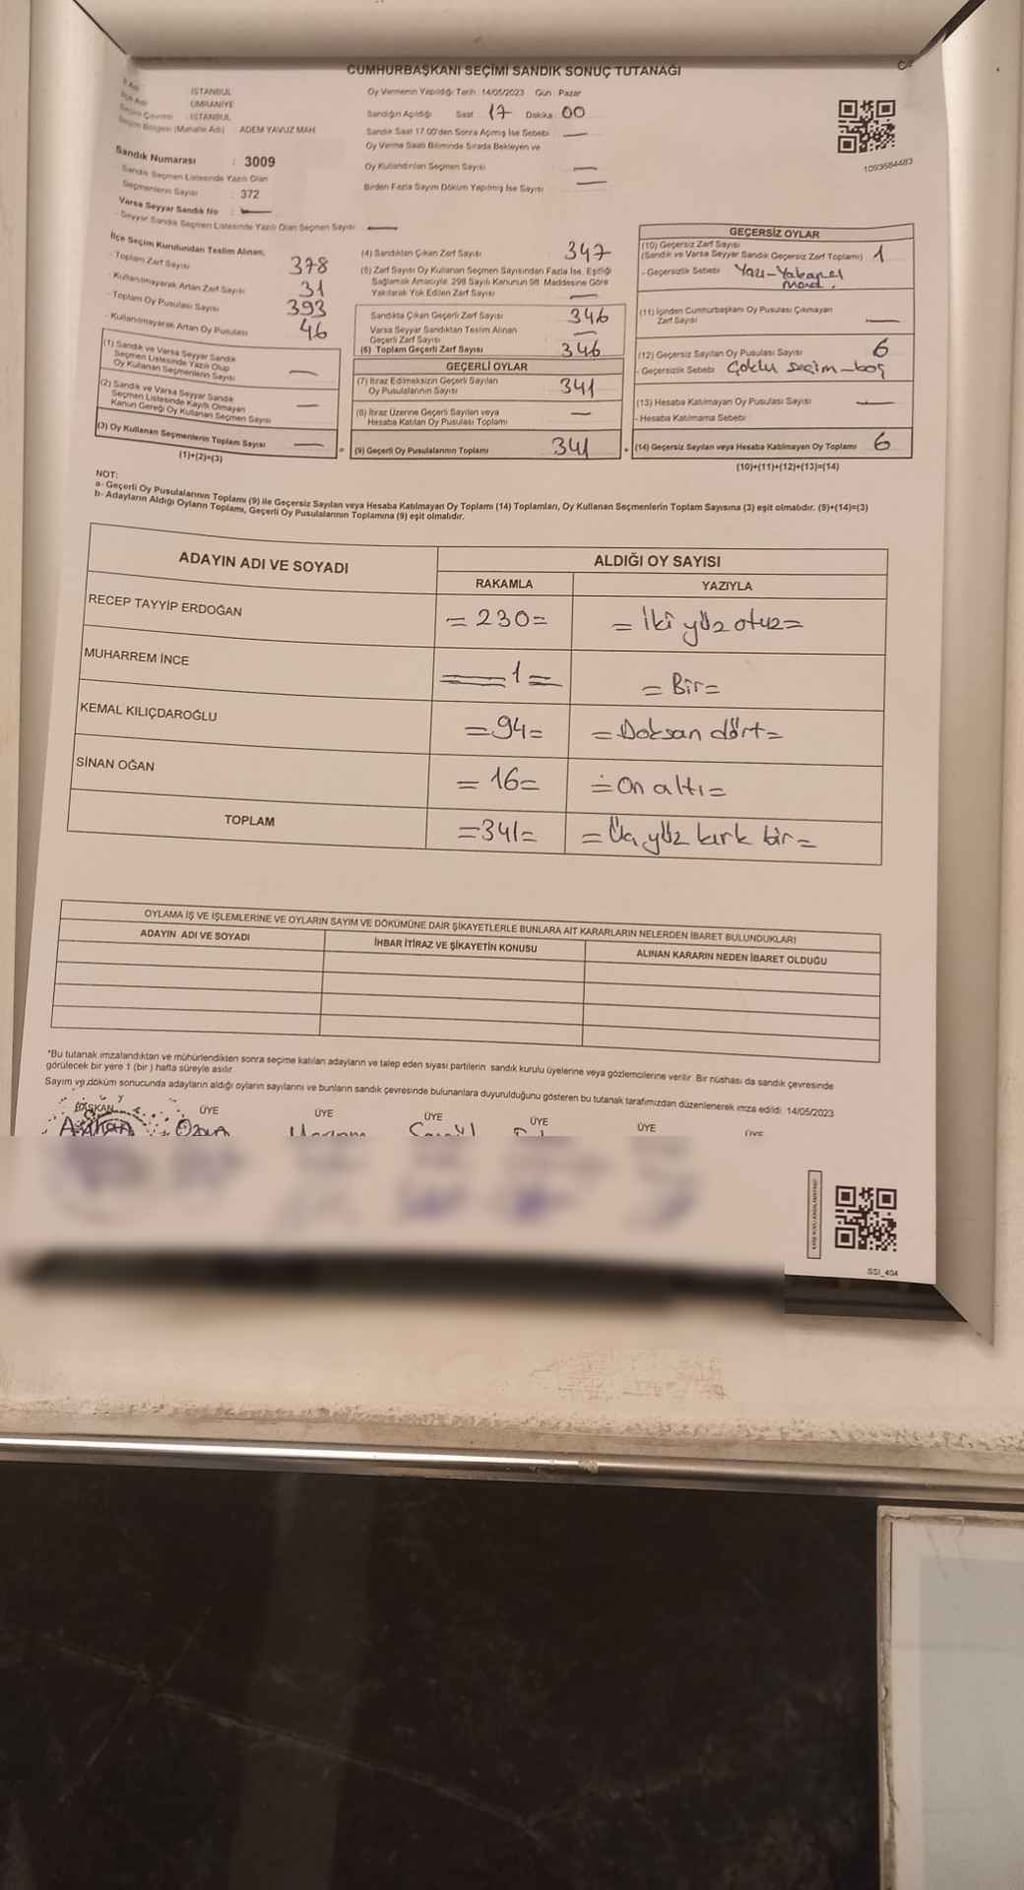 CUMHURBAŞKANI SEÇİMİ SANDIK SONUÇ TUTANAĞI
İSTANBUL
ÜMRANİYE
İSTANBUL
(Mahalle Adı) ADEM YAVUZ MAH.
Sandık Numarası : 3009
Sandık Seçmen Listesinde Yazılı Olan
Seçmenlerin Sayısı : 372
Varsa Seyyar Sandık No : —
Seyyar Sandık Seçmen Listesinde Yazılı Olan Seçmen Sayısı —
Oy Vermenin Yapıldığı Tarih : 14/05/2023 Gün : Pazar
Sandığın Açıldığı Saat : 17 Dakika : 00
Sandık Saat 17.00'den Sonra Açılmış İse Sebebi —
Oy Verme Saati Bitiminde Sırada Bekleyen ve
Oy Kullandırılan Seçmen Sayısı —
Birden Fazla Sayım Döküm Yapılmış İse Sayısı —
1093684483
İlçe Seçim Kurulundan Teslim Alınan;
- Toplam Zarf Sayısı 378
- Kullanılmayarak Artan Zarf Sayısı 31
- Toplam Oy Pusulası Sayısı 393
- Kullanılmayarak Artan Oy Pusulası 46
(1) Sandık ve Varsa Seyyar Sandık
Seçmen Listesinde Yazılı Olup
Oy Kullanan Seçmenlerin Sayısı —
(2) Sandık ve Varsa Seyyar Sandık
Seçmen Listesinde Kayıtlı Olmayan
Kanun Gereği Oy Kullanan Seçmen Sayısı —
(3) Oy Kullanan Seçmenlerin Toplam Sayısı —
(1)+(2)=(3)
(4) Sandıktan Çıkan Zarf Sayısı 347
(5) Zarf Sayısı Oy Kullanan Seçmen Sayısından Fazla İse, Eşitliği
Sağlamak Amacıyla 298 Sayılı Kanunun 98. Maddesine Göre
Yakılarak Yok Edilen Zarf Sayısı —
Sandıkta Çıkan Geçerli Zarf Sayısı 346
Varsa Seyyar Sandıktan Teslim Alınan
Geçerli Zarf Sayısı —
(6) Toplam Geçerli Zarf Sayısı 346
GEÇERLİ OYLAR
(7) İtiraz Edilmeksizin Geçerli Sayılan
Oy Pusulalarının Sayısı 341
(8) İtiraz Üzerine Geçerli Sayılan veya
Hesaba Katılan Oy Pusulası Toplamı —
(9) Geçerli Oy Pusulalarının Toplamı 341
GEÇERSİZ OYLAR
(10) Geçersiz Zarf Sayısı
(Sandık ve Varsa Seyyar Sandık Geçersiz Zarf Toplamı) 1
- Geçersizlik Sebebi
(11) İçinden Cumhurbaşkanı Oy Pusulası Çıkmayan
Zarf Sayısı —
(12) Geçersiz Sayılan Oy Pusulası Sayısı 6
- Geçersizlik Sebebi Çoklu seçim - boş
(13) Hesaba Katılmayan Oy Pusulası Sayısı —
- Hesaba Katılmama Sebebi
(14) Geçersiz Sayılan veya Hesaba Katılmayan Oy Toplamı 6
(10)+(11)+(12)+(13)=(14)
NOT:
a- Geçerli Oy Pusulalarının Toplamı (9) ile Geçersiz Sayılan veya Hesaba Katılmayan Oy Toplamı (14) Toplamları, Oy Kullanan Seçmenlerin Toplam Sayısına (3) eşit olmalıdır. (9)+(14)=(3)
b- Adayların Aldığı Oyların Toplamı, Geçerli Oy Pusulalarının Toplamına (9) eşit olmalıdır.
ADAYIN ADI VE SOYADI
ALDIĞI OY SAYISI
RAKAMLA YAZIYLA
RECEP TAYYİP ERDOĞAN = 230 = = İki yüz otuz =
MUHARREM İNCE = 1 = = Bir =
KEMAL KILIÇDAROĞLU = 94 = = Doksan dört =
SİNAN OĞAN = 16 = = On altı =
TOPLAM = 341 = = Üç yüz kırk bir =
OYLAMA İŞ VE İŞLEMLERİNE VE OYLARIN SAYIM VE DÖKÜMÜNE DAİR ŞİKAYETLERLE BUNLARA AİT KARARLARIN NELERDEN İBARET BULUNDUKLARI
ADAYIN ADI VE SOYADI İHBAR İTİRAZ VE ŞİKAYETİN KONUSU ALINAN KARARIN NEDEN İBARET OLDUĞU
*Bu tutanak imzalandıktan ve mühürlendikten sonra seçime katılan adayların ve talep eden siyasi partilerin sandık kurulu üyelerine veya gözlemcilerine verilir. Bir nüshası da sandık çevresinde
görülecek bir yere 1 (bir) hafta süreyle asılır.
Sayım ve döküm sonucunda adayların aldığı oyların sayılarını ve bunların sandık çevresinde bulunanlara duyurulduğunu gösteren bu tutanak tarafımızdan düzenlenerek imza edildi. 14/05/2023
BAŞKAN ÜYE ÜYE ÜYE ÜYE ÜYE ÜYE
SSI_404